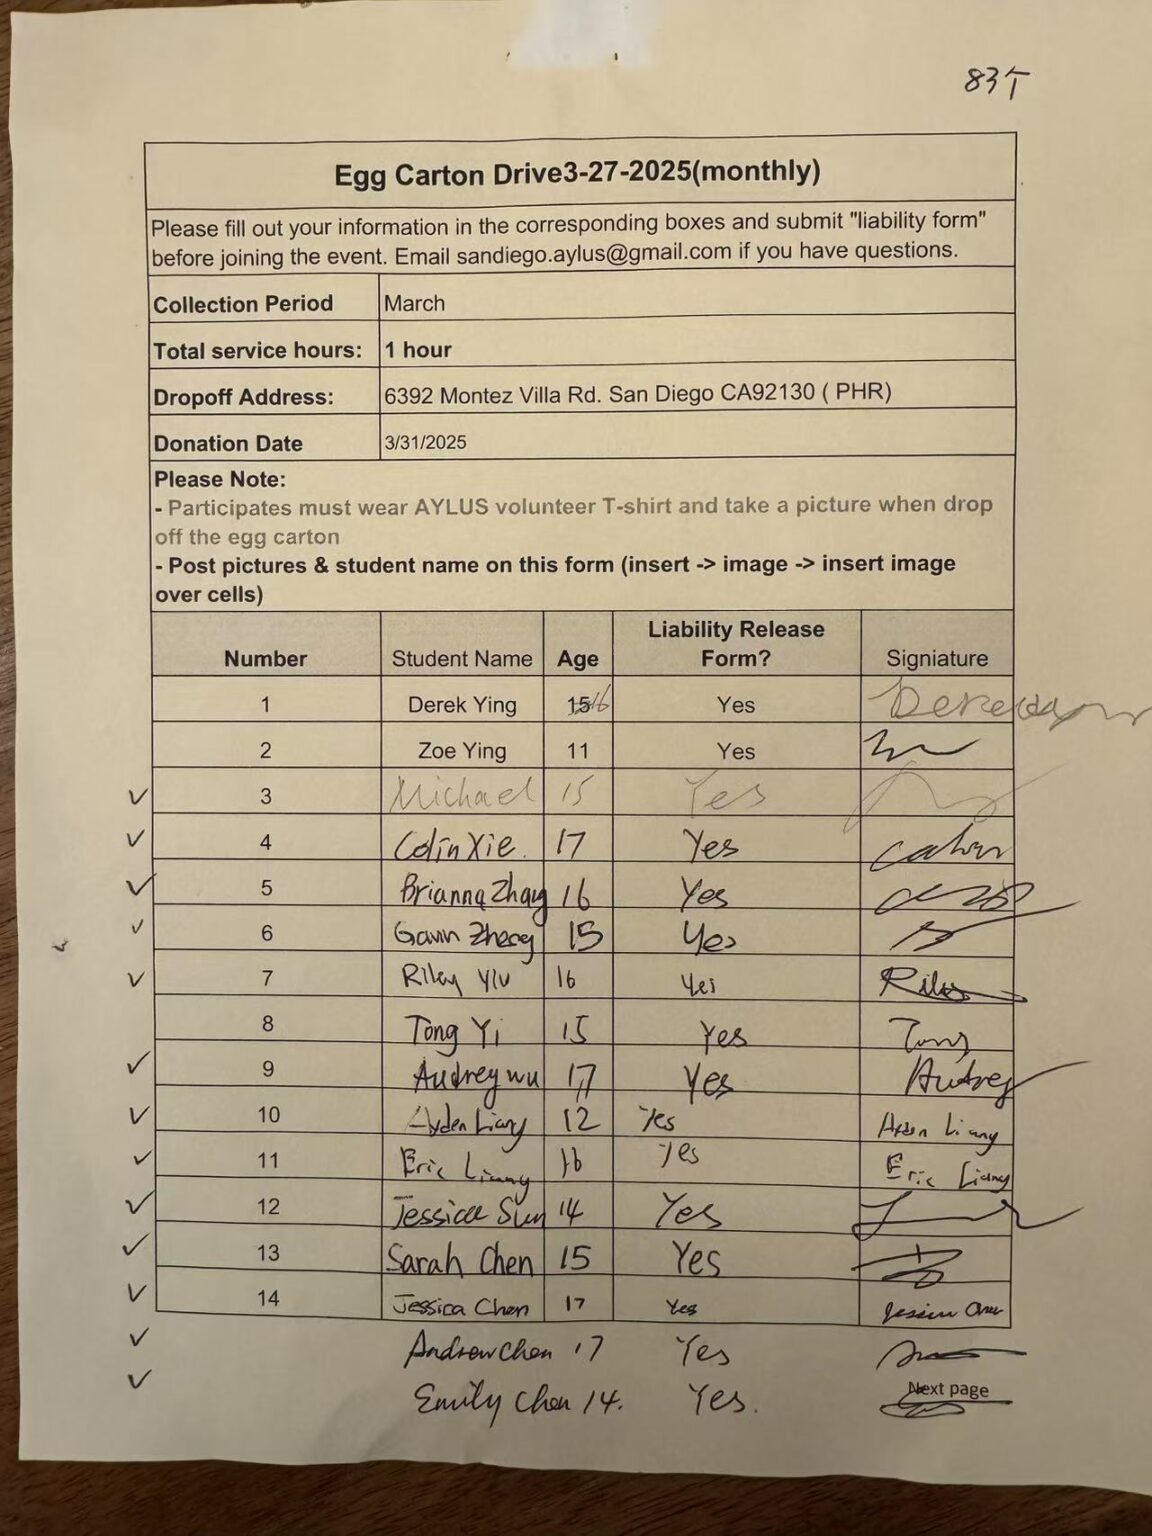 83个
Egg Carton Drive3-27-2025(monthly)
Please fill out your information in the corresponding boxes and submit "liability form"
before joining the event. Email sandiego.aylus@gmail.com if you have questions.
Collection Period March
Total service hours: 1 hour
Dropoff Address: 6392 Montez Villa Rd. San Diego CA92130 ( PHR)
Donation Date 3/31/2025
Please Note:
- Participates must wear AYLUS volunteer T-shirt and take a picture when drop
off the egg carton
- Post pictures & student name on this form (insert -> image -> insert image
over cells)
Number Student Name Age Liability Release Form? Signiature
1 Derek Ying 15 16 Yes Derek
2 Zoe Ying 11 Yes
✓ 3 Michael 15 Yes
✓ 4 Colin Xie. 17 Yes
✓ 5 Brianna Zhang 16 Yes
✓ 6 Gavin Zheng 15 Yes
✓ 7 Riley Yiu 16 Yes Riley
8 Tong Yi 15 Yes Tong
✓ 9 Audrey wu 17 Yes Audrey
✓ 10 Ayden Liang 12 Yes Ayden Liang
✓ 11 Eric Liang 16 Yes Eric Liang
✓ 12 Jessica Sun 14 Yes
✓ 13 Sarah Chen 15 Yes
✓ 14 Jessica Chen 17 Yes Jessica Chen
✓ Andrew Chen 17 Yes
✓ Emily Chen 14. Yes.
Next page